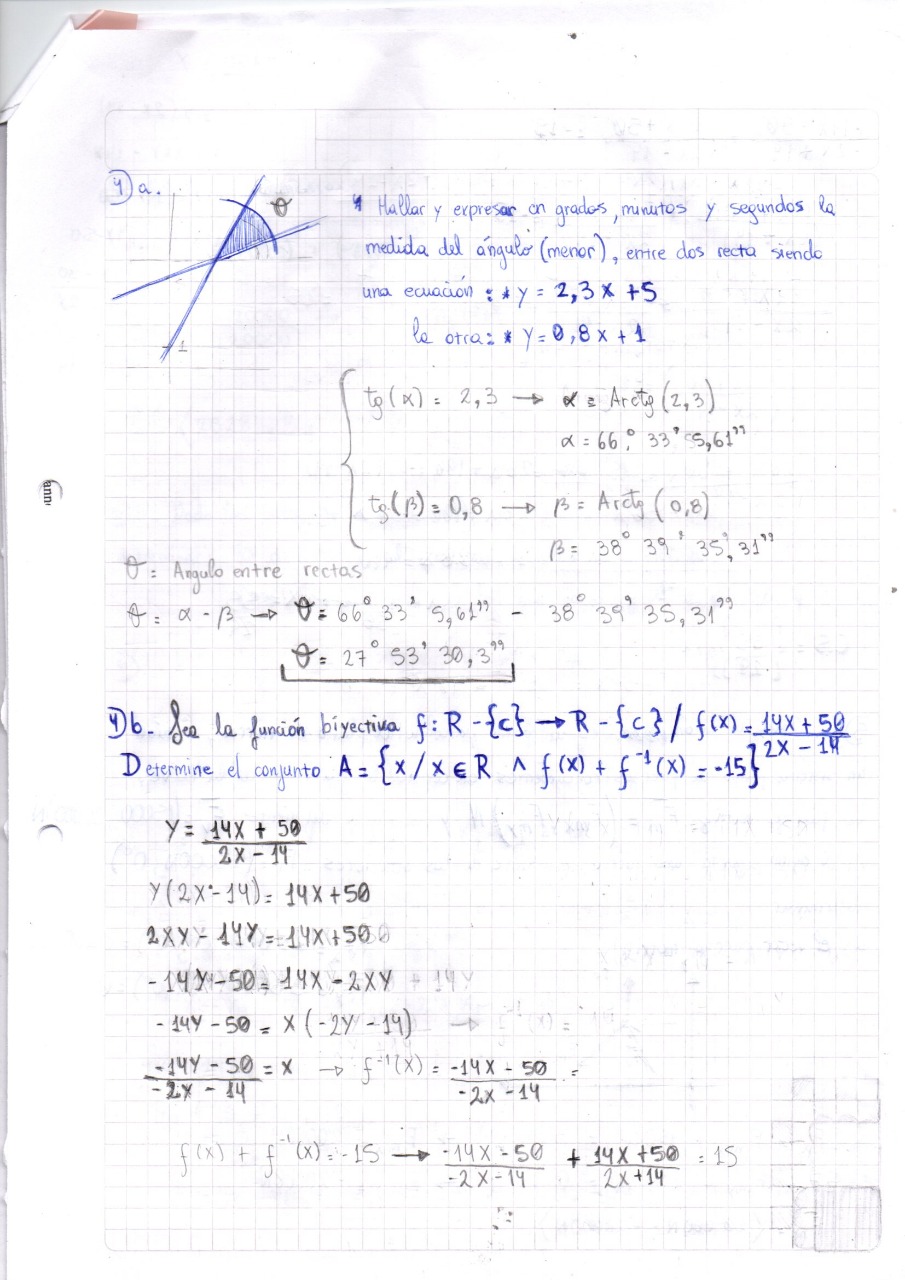 4) a.
θ
Hallar y expresar en grados, minutos y segundos la
medida del ángulo (menor), entre dos recta siendo
una ecuación : * y = 2,3 x +5
la otra : * Y = 0,8x + 1
-1
tg(α) = 2,3 → α = Arctg (2,3)
α = 66° 33' 5,61''
tg(β) = 0,8 → β = Arctg (0,8)
β = 38° 39' 35,31''
θ = Angulo entre rectas
θ = α - β → θ = 66° 33' 5,61'' - 38° 39' 35,31''
θ = 27° 53' 30,3''
4) b. Sea la función biyectiva f: R -{c} → R -{c} / f(x) = 14x + 50 / 2x - 14
Determine el conjunto A = {x/x ∈ R ∧ f(x) + f⁻¹(x) = -15}
Y = 14X + 50 / 2X - 14
Y(2X - 14) = 14X + 50
2XY - 14Y = 14X + 50
-14Y - 50 = 14X - 2XY
-14Y - 50 = X(-2Y - 14)
-14Y - 50 / -2X - 14 = X → f⁻¹(X) = -14X - 50 / -2X - 14 =
f(x) + f⁻¹(x) = -15 → -14X - 50 / -2X - 14 + 14X + 50 / 2X + 14 = 15